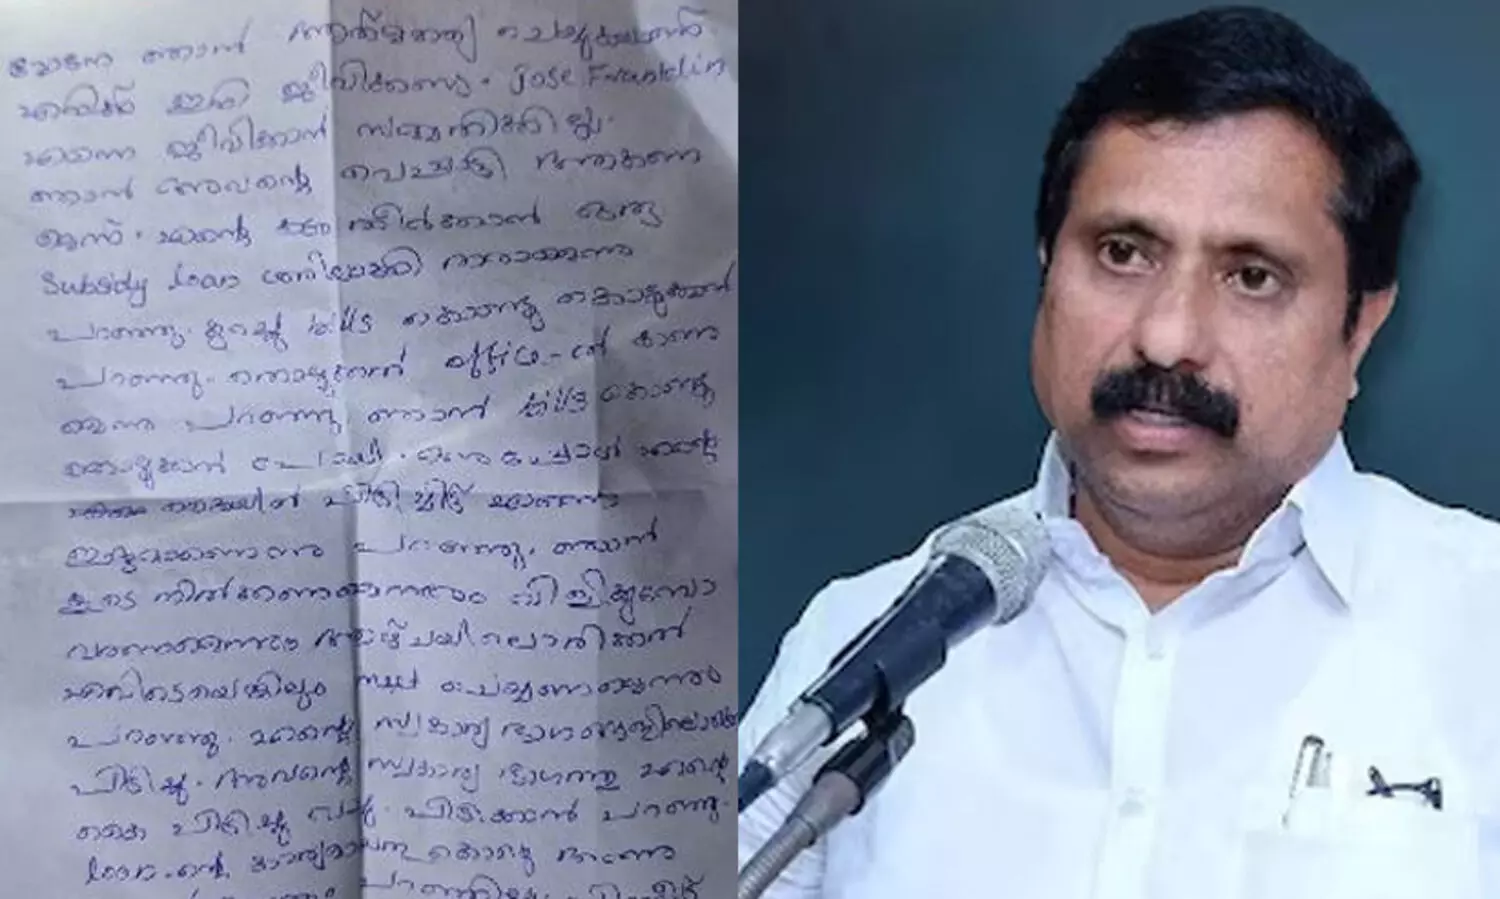 മോനേ ഞാൻ ആത്മഹത്യ ചെയ്യുകയാണ്.
എനിക്ക് ഇനി ജീവിക്കണ്ട. Jose Franklin
എന്നെ ജീവിക്കാൻ സമ്മതിക്കില്ല.
ഞാൻ അവന്റെ വെപ്പാട്ടി ആകണം
എന്ന്. എന്റെ കടം തീർക്കാൻ ഒരു
Subsidy loan ശരിയാക്കി തരാമെന്നു
പറഞ്ഞു. കുറച്ച് bills കൊണ്ടു കൊടുക്കാൻ
പറഞ്ഞു. office-ൽ
പറഞ്ഞു ഞാൻ bills കൊണ്ടു
കൊടുക്കാൻ പോയി. എന്റെ
കൈയിൽ പിടിച്ചിട്ട്
ഇഷ്ടമാണെന്നു പറഞ്ഞു. ഞാൻ
കൂടെ നിൽക്കണമെന്നും വിളിക്കുമ്പോ
വരണമെന്നും ആഴ്ചയിലൊരിക്കൽ
എവിടെയെങ്കിലും ചെയ്യണമെന്നും
പറഞ്ഞു. എന്റെ സ്വകാര്യ
പിടിച്ചു. അവന്റെ സ്വകാര്യ ഭാഗത്തു എന്റെ
കൈ പിടിച്ചു വച്ചു. പിടിക്കാൻ പറഞ്ഞു.
loan-ന്റെ